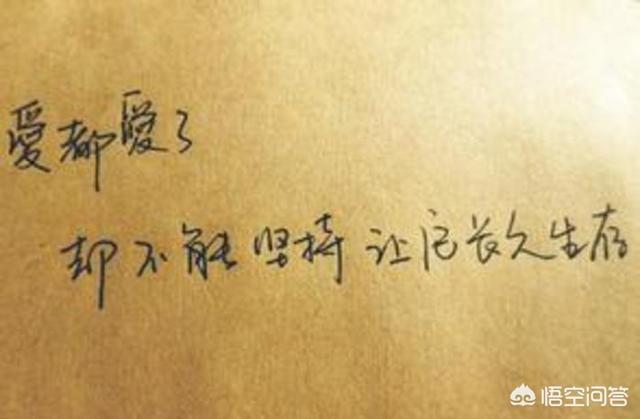 愛都愛了
却不能坚持让它长久生存
悟空问答